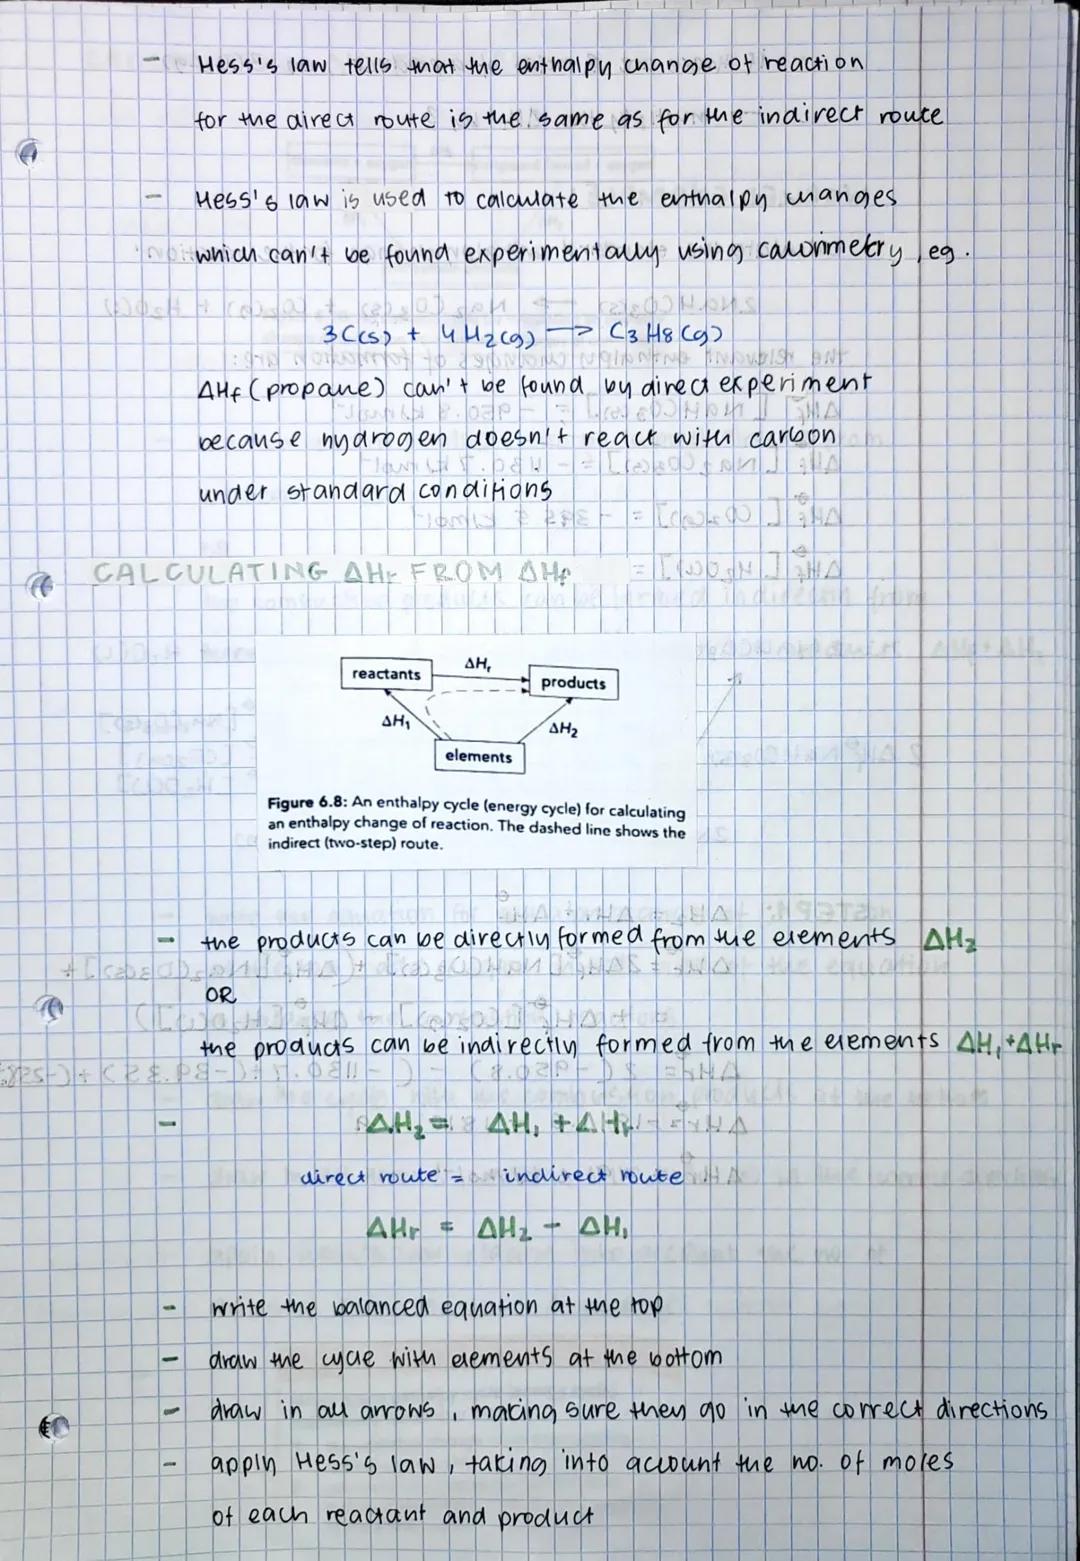 - Hess's law tells that the enthalpy change of reaction
for the direct route is the same as for the indirect route
- Hess's law is used to calculate the enthalpy changes
which can't be found experimentally using calorimetry, eg.
3C(s) + 4H2(g) → C3H8(g)
ΔHf (propane) can't be found by direct experiment
because hydrogen doesn't react with carbon
under standard conditions
CALCULATING ΔHr FROM ΔHf
reactants ΔHr products
ΔH1 ΔH2
elements
Figure 6.8: An enthalpy cycle (energy cycle) for calculating
an enthalpy change of reaction. The dashed line shows the
indirect (two-step) route.
- the products can be directly formed from the elements ΔH2
OR
the products can be indirectly formed from the elements ΔH1+ΔHr
- ΔH2 = ΔH1 + ΔHr
direct route = indirect route
ΔHr = ΔH2 - ΔH1
- write the balanced equation at the top
- draw the cycle with elements at the bottom
- draw in all arrows, making sure they go in the correct directions
- apply Hess's law, taking into account the no. of moles
of each reactant and product